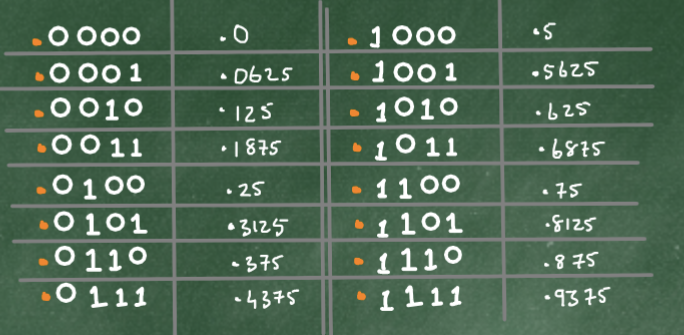 .0000 .0 .1000 .5
.0001 .0625 .1001 .5625
.0010 .125 .1010 .625
.0011 .1875 .1011 .6875
.0100 .25 .1100 .75
.0101 .3125 .1101 .8125
.0110 .375 .1110 .875
.0111 .4375 .1111 .9375